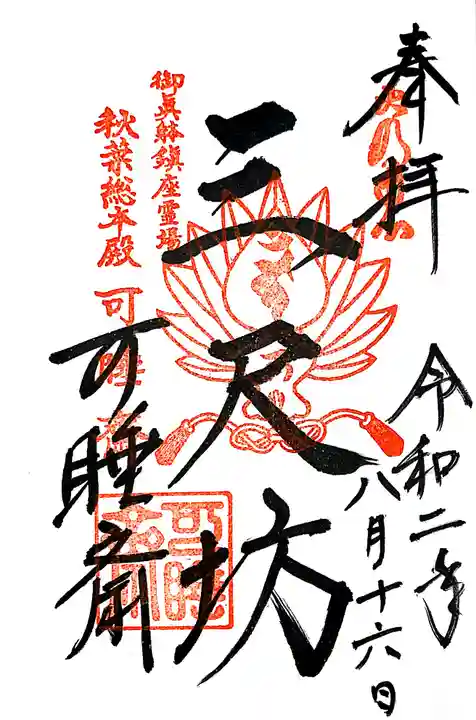 奉拝
令和二年
八月十六日
三尺坊
御真躰鎮座霊場
秋葉総本殿 可睡斎
可睡斎